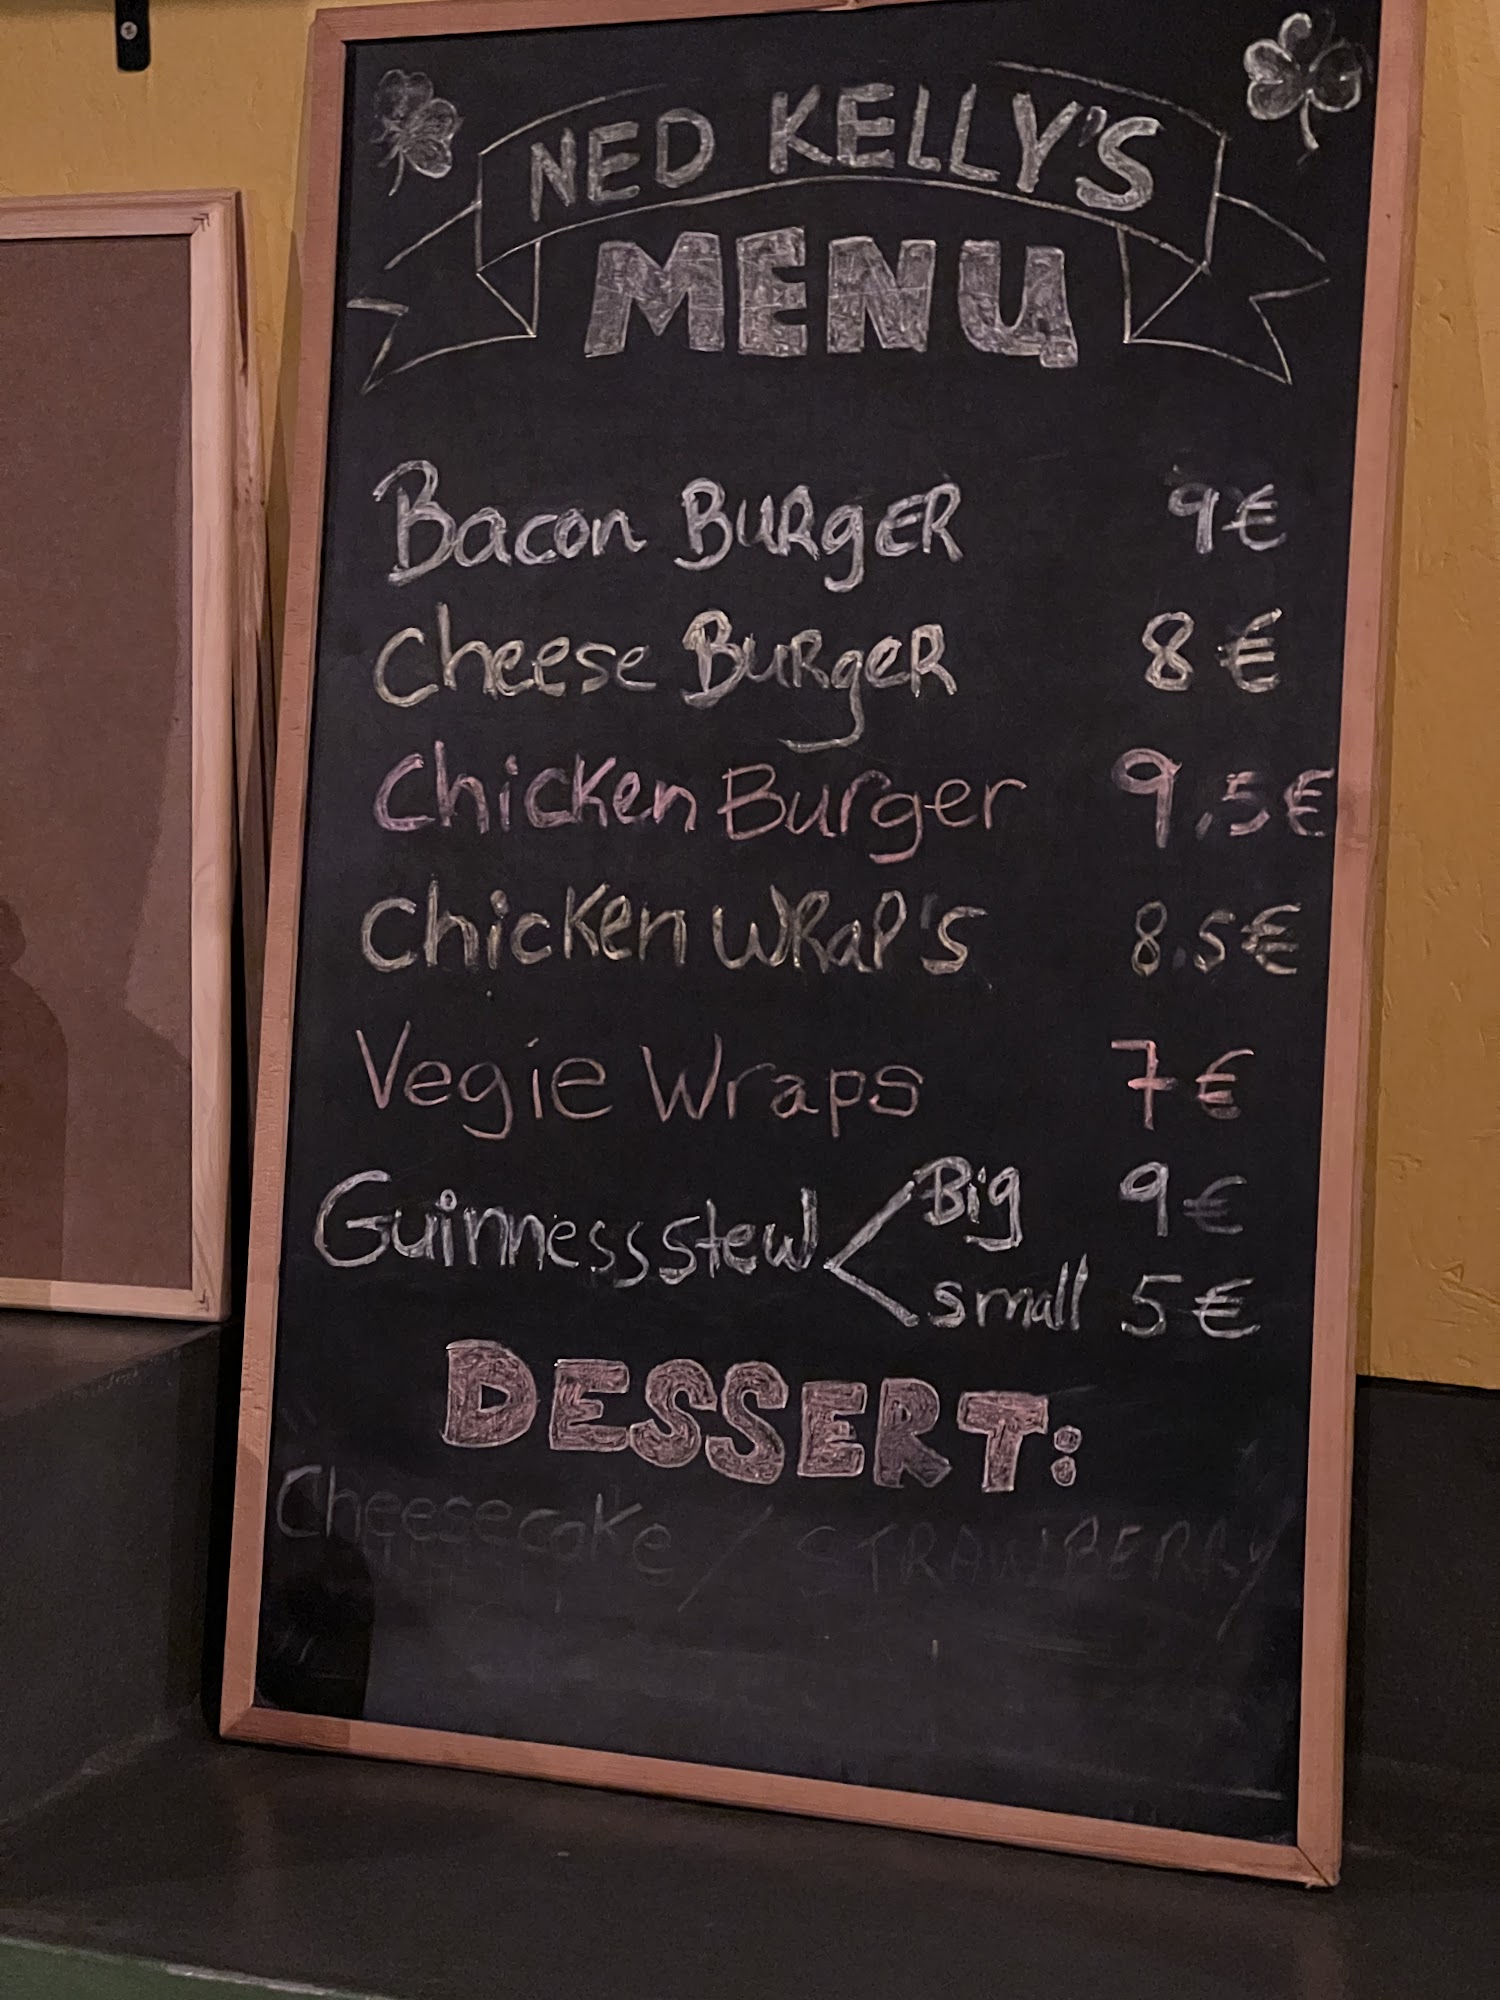 NED KELLY'S
MENU
Bacon BURgER 9€
Cheese BURgeR 8€
Chicken Burger 9.5€
Chicken WRaP'S 8.5€
Vegie Wraps 7€
Guinness stew Big 9€
small 5€
DESSERT:
Cheesecake / STRAWBERRY